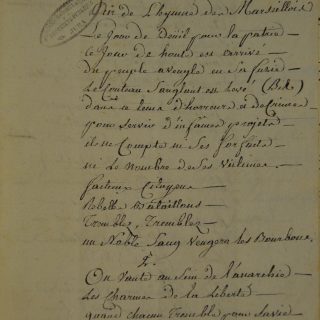 Air de L'hymne des Marseillois
Le Jour de Deüil pour la patrie
Le Jour de honte est arrivé
du peuple aveugle en sa furie
Le Couteau Sanglant est levé (Bis)
dans ce tems d'horreurs et de crimes
pour servir d'infâmes projets
il ne Compte ni Ses forfaits
ni Le nombre de Ses Victimes
factieux Citoyens
Rebelles Bataillons
Tremblez, Tremblez
un Noble Sang Vengera les Bourbons.
2.
On Vante au Sein de l'anarchie
Les Charmes de la Liberté
quand chacun Tremble pour Sa vie